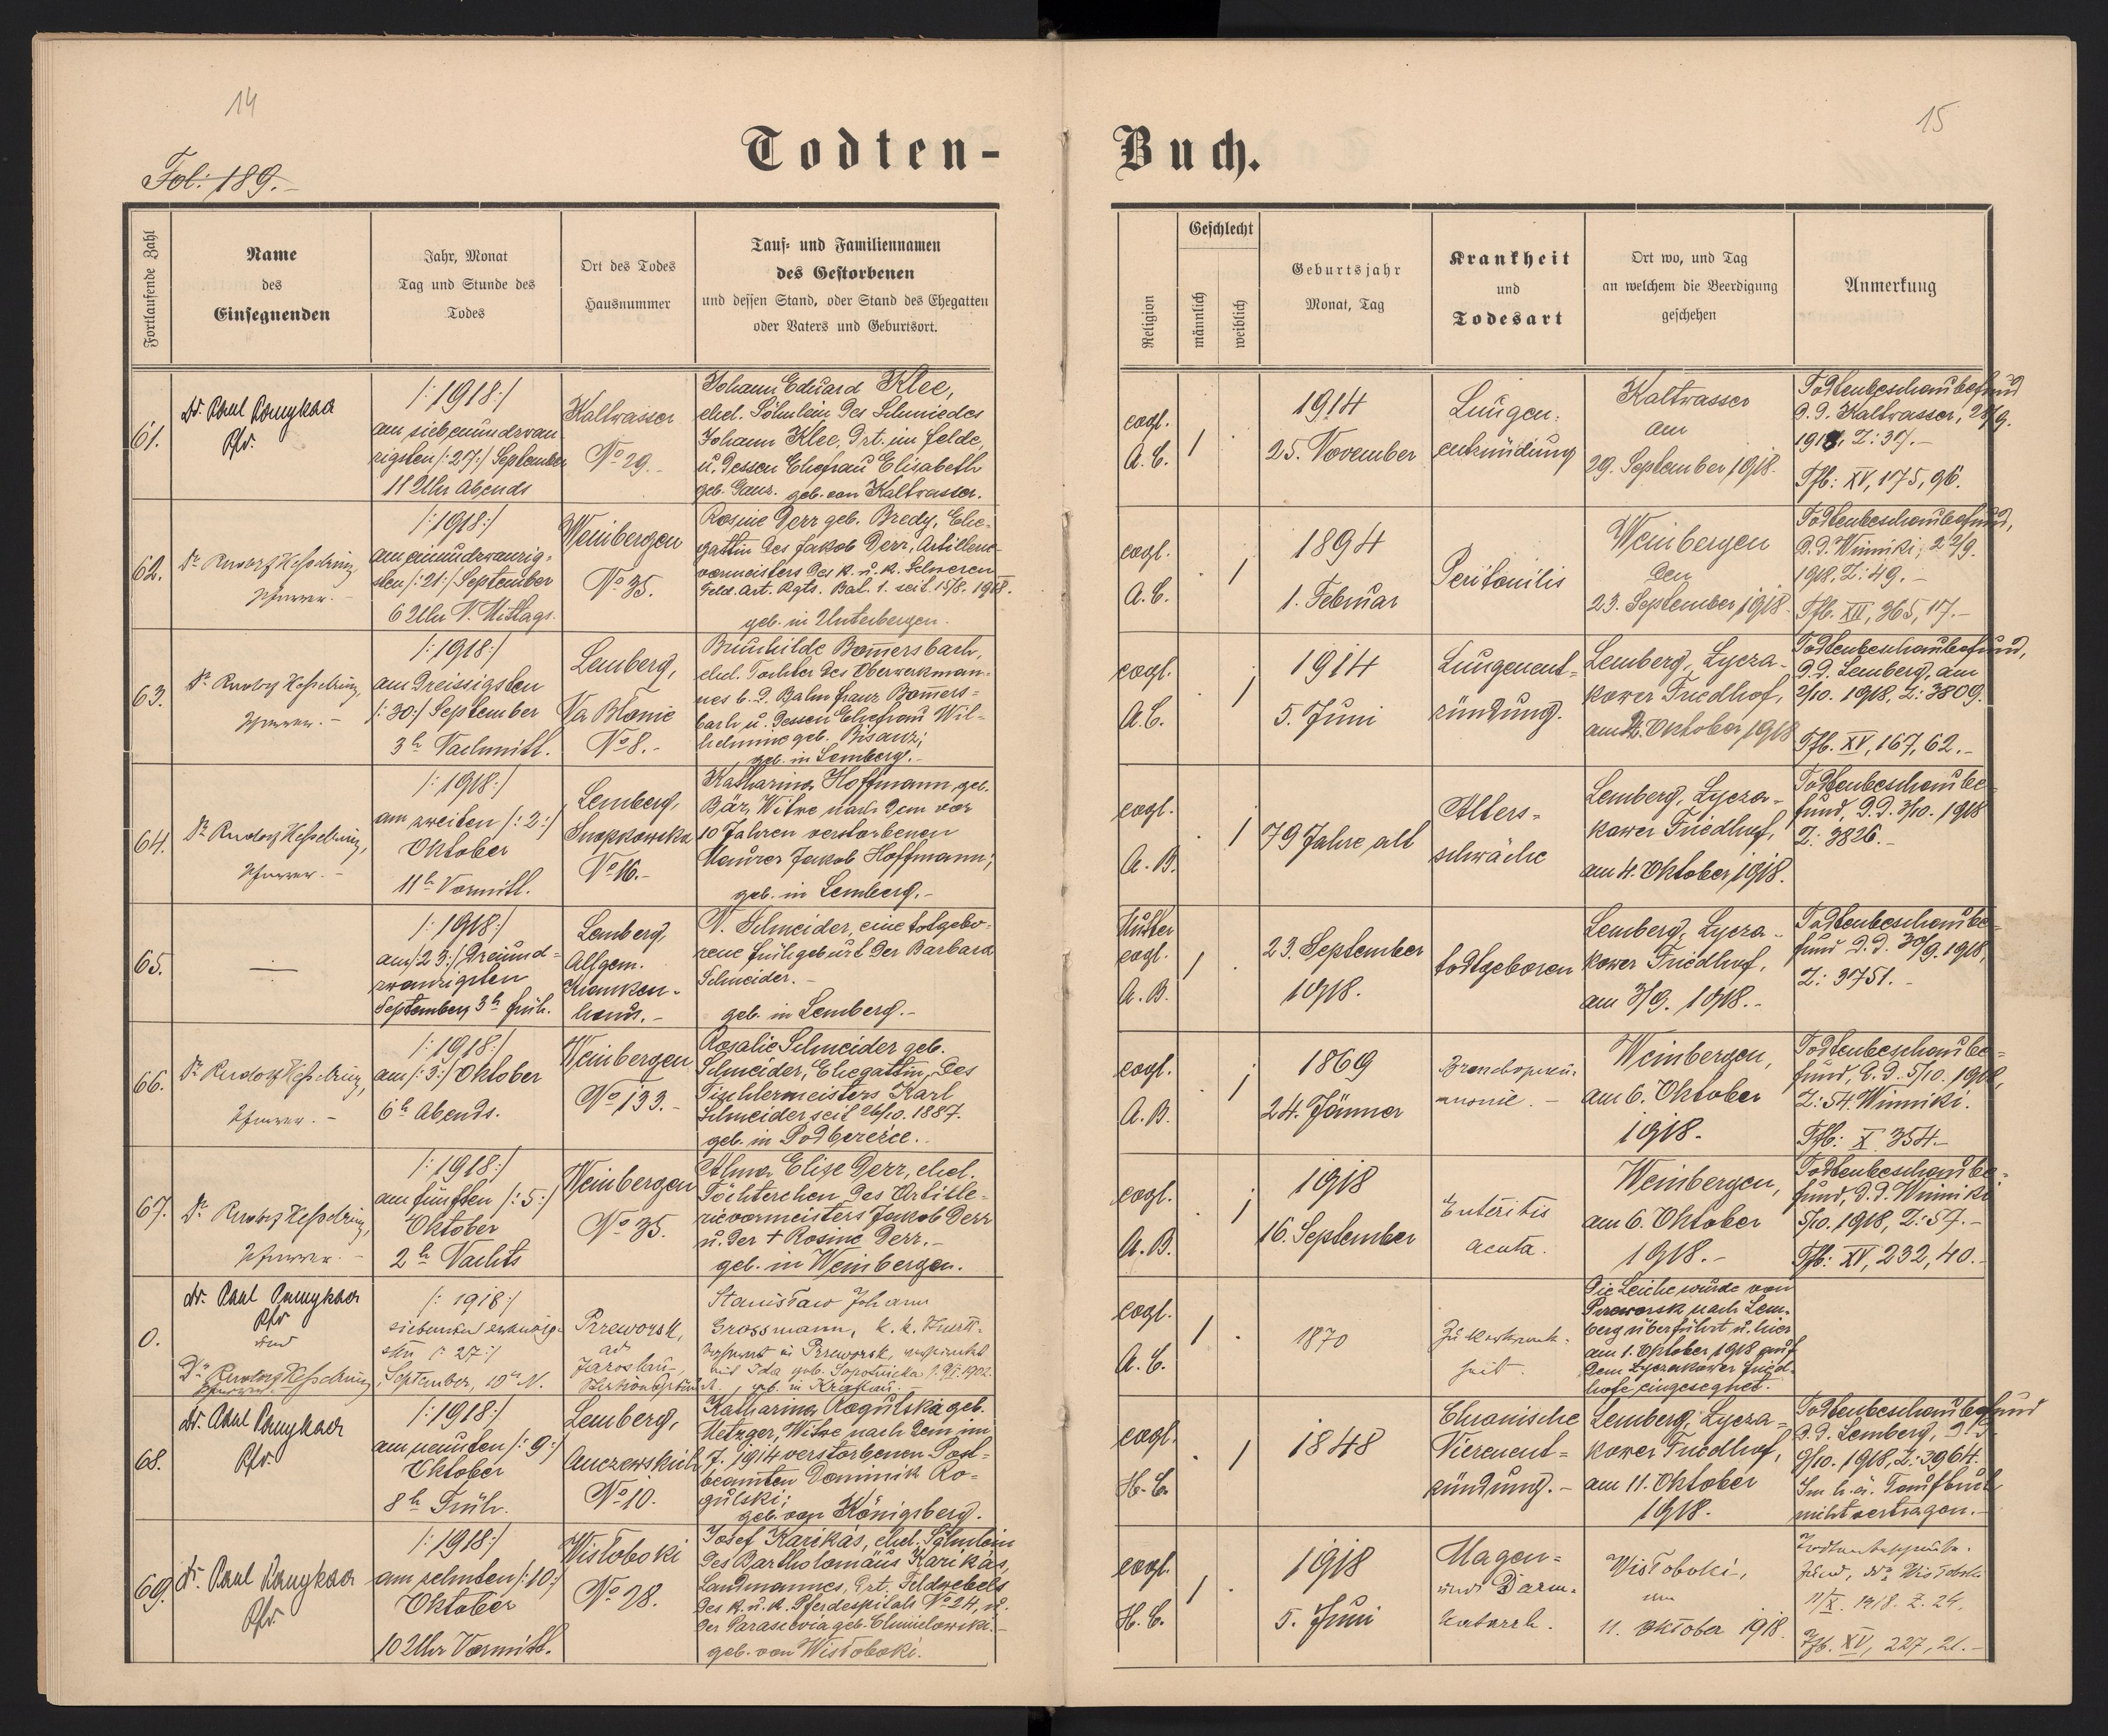 14
15
Todten-
Buch.
Fol: 189.-
Fortlaufende Zahl
Name
des
Einsegnenden
Jahr, Monat
Tag und Stunde des
Todes
Ort des Todes
Hausnummer
Tauf- und Familiennamen
des Gestorbenen
und dessen Stand, oder Stand des Ehegatten
oder Vaters und Geburtsort.
Religion
Geschlecht
männlich
weiblich
Geburtsjahr
Monat, Tag
Krankheit
und
Todesart
Ort wo, und Tag
an welchem die Beerdigung
geschehen
Anmerkung
61.
Dr. Paul
Pfr.
/:1918:/
am siebenundzwan
zigsten /:27:/ September
11 Uhr Abends
Kaltwasser
No 29.-
Johann Eduard Klee,
ehel. Söhnlein des Schmiedes
Johann Klee, Dzt. im Felde,
u. dessen Ehefrau Elisabeth
geb. Ganz. geb. von Kaltwasser.
evgl.
A.C.
1
1914
25. November
Lungen-
entzündung
Kaltwasser
am
29. September 1918.
Todtenbeschaubefund
d. d. Kaltwasser, 28/9.
1918, Z: 37.-
Tfb: XV, 175, 96.
62.
Dr. Rudolf Kesselring,
Pfarrer.-
/:1918:/
am einundzwanzig-
sten /:21:/ September
6 Uhr N. Mittags.
Weinbergen
No 35.
Rosine Derr geb. Bredy, Ehe-
gattin des Jakob Derr, Artillerie-
vormeisters des k. u. k. Schweren
Feld. Art. Rgts. Bat. 1. seit 15/8. 1918.
geb. in Unterbergen.
evgl.
A.C.
1
1894
1. Februar
Peritonitis
Weinbergen
den
23. September 1918.
Todtenbeschaubefund,
d. d. Winniki, 22/9.
1918, Z: 49.-
Tfb. XII, 365, 17.-
63.
Dr. Rudolf Kesselring,
Pfarrer.-
/:1918:/
am dreissigsten
/:30:/ September
3h Nachmitt.
Lemberg,
Na Błonie
No 8.-
Brunhilde Bomersbach,
ehel. Tochter des Oberwerkman-
nes b. d. Bahn Franz Bomers-
bach u. dessen Ehefrau Wil-
helmine geb. Bisanz;
geb. in Lemberg.-
evgl.
A.C.
1
1914
5. Juni
Lungenent-
zündung.
Lemberg, Lycza-
kower Friedhof,
am 2. Oktober 1918
Todtenbeschaubefund,
d. d. Lemberg, am
2/10. 1918, Z: 3809.
Tfb. XV, 167, 62.-
64.
Dr. Rudolf Kesselring,
Pfarrer.-
/:1918:/
am zweiten /:2:/
Oktober
11h Vormitt.
Lemberg,
Snopkowska
No 16.-
Katharina Hoffmann, geb.
Bär, Witwe nach dem vor
10 Jahren verstorbenen
Maurer Jakob Hoffmann;
geb. in Lemberg.-
evgl.
A.B.
1
79 Jahre alt
Alters-
schwäche
Lemberg, Lycza-
kower Friedhof,
am 4. Oktober 1918.
Todtenbeschaube-
fund, d. d. 3/10. 1918
Z: 3826.-
65.
—
/:1918:/
am /:23:/ dreiund-
zwanzigsten
September 3h früh.
Lemberg,
Allgem.
Kranken-
haus.-
N. Schneider, eine totgebo-
rene Frühgeburt der Barbara
Schneider.-
geb. in Lemberg.-
Mutter
evgl.
A.B.
1
23. September
1918.
todtgeboren
Lemberg, Lycza-
kower Friedhof,
am 3/9. 1918.-
Todtenbeschaube-
fund d. d. 30/9. 1918,
Z: 3751.-
66.
Dr. Rudolf Kesselring,
Pfarrer.-
/:1918:/
am /:3:/ Oktober
6h Abends.
Weinbergen
No 133.-
Rosalie Schneider geb.
Schneider, Ehegattin des
Tischlermeisters Karl
Schneider seit 26/10. 1887.
geb. in Podbereźce.-
evgl.
A.B.
1
1869
24. Jänner
Bronchopneu-
monie.-
Weinbergen,
am 6. Oktober
1918.
Todtenbeschaube-
fund, d. d. 5/10. 1918,
Z: 54. Winniki.
Tfb: X 354.-
67.
Dr. Rudolf Kesselring,
Pfarrer.-
/:1918:/
am fünften /:5:/
Oktober
2h Nachts
Weinbergen
No 35.
Alma Elise Derr, ehel.
Töchterchen des Artille-
rievormeisters Jakob Derr
u. der + Rosine Derr.-
geb. in Weinbergen.
evgl.
A.B.
1
1918
16. September
Enteritis
acuta.
Weinbergen,
am 6. Oktober
1918.-
Todtenbeschaube-
fund, d. d. Winniki
5/10. 1918, Z: 57.-
Tfb: XV, 232, 40.-
0.
Dr. Paul
Pfr
und
Dr. Rudolf Kesselring
Pfarrer.-
/:1918:/
siebenundzwanzig-
sten /:27:/
September, 10h N.
Przeworsk,
ad
Jaroslau,
Stanisław Johann
Grossmann, k. k.
in Przeworsk,
mit Ida geb.
geb. in Krakau.
evgl.
A.C.
1
1870
Zuckerkrank-
heit.
Die Leiche wurde von
Przeworsk nach Lem-
berg überführt u. hier
am 1. Oktober 1918 auf
dem Lyczakower Fried-
hofe eingesegnet.
68.
Dr. Paul
Pfr.
/:1918:/
am neunten /:9:/
Oktober
8h Früh.
Lemberg,
No 10.
Katharina Rogulska geb.
Metzger, Witwe nach dem im
J. 1914 verstorbenen Post-
beamten Dominik Ro-
gulski;
geb. von Königsberg.
evgl.
H.C.
1
1848
Chronische
Nierenent-
zündung.-
Lemberg, Lycza-
kower Friedhof,
am 11. Oktober
1918.
Todtenbeschaubefund
d. d. Lemberg,
9/10. 1918, Z: 3964.
Im h. ä. Taufbuch
nicht vertragen.-
69.
Dr. Paul
Pfr.
/:1918:/
am zehnten /:10:/
Oktober
10 Uhr Vormitt.
Wisłoboki
No 28.
Josef Karikás, ehel. Söhnlein
des Bartholomäus Karikás,
Landmannes, Dzt. Feldwebels
des k. u. k. Pferdespitals No 24, u.
der Parascevia geb.
geb. von Wisłoboki.
evgl.
H.C.
1
1918
5. Juni
Magen-
und Darm-
katarrh.
Wisłoboki,
am
11. Oktober 1918.
11/X. 1918. Z. 24.
Tfb. XV, 227, 21.-